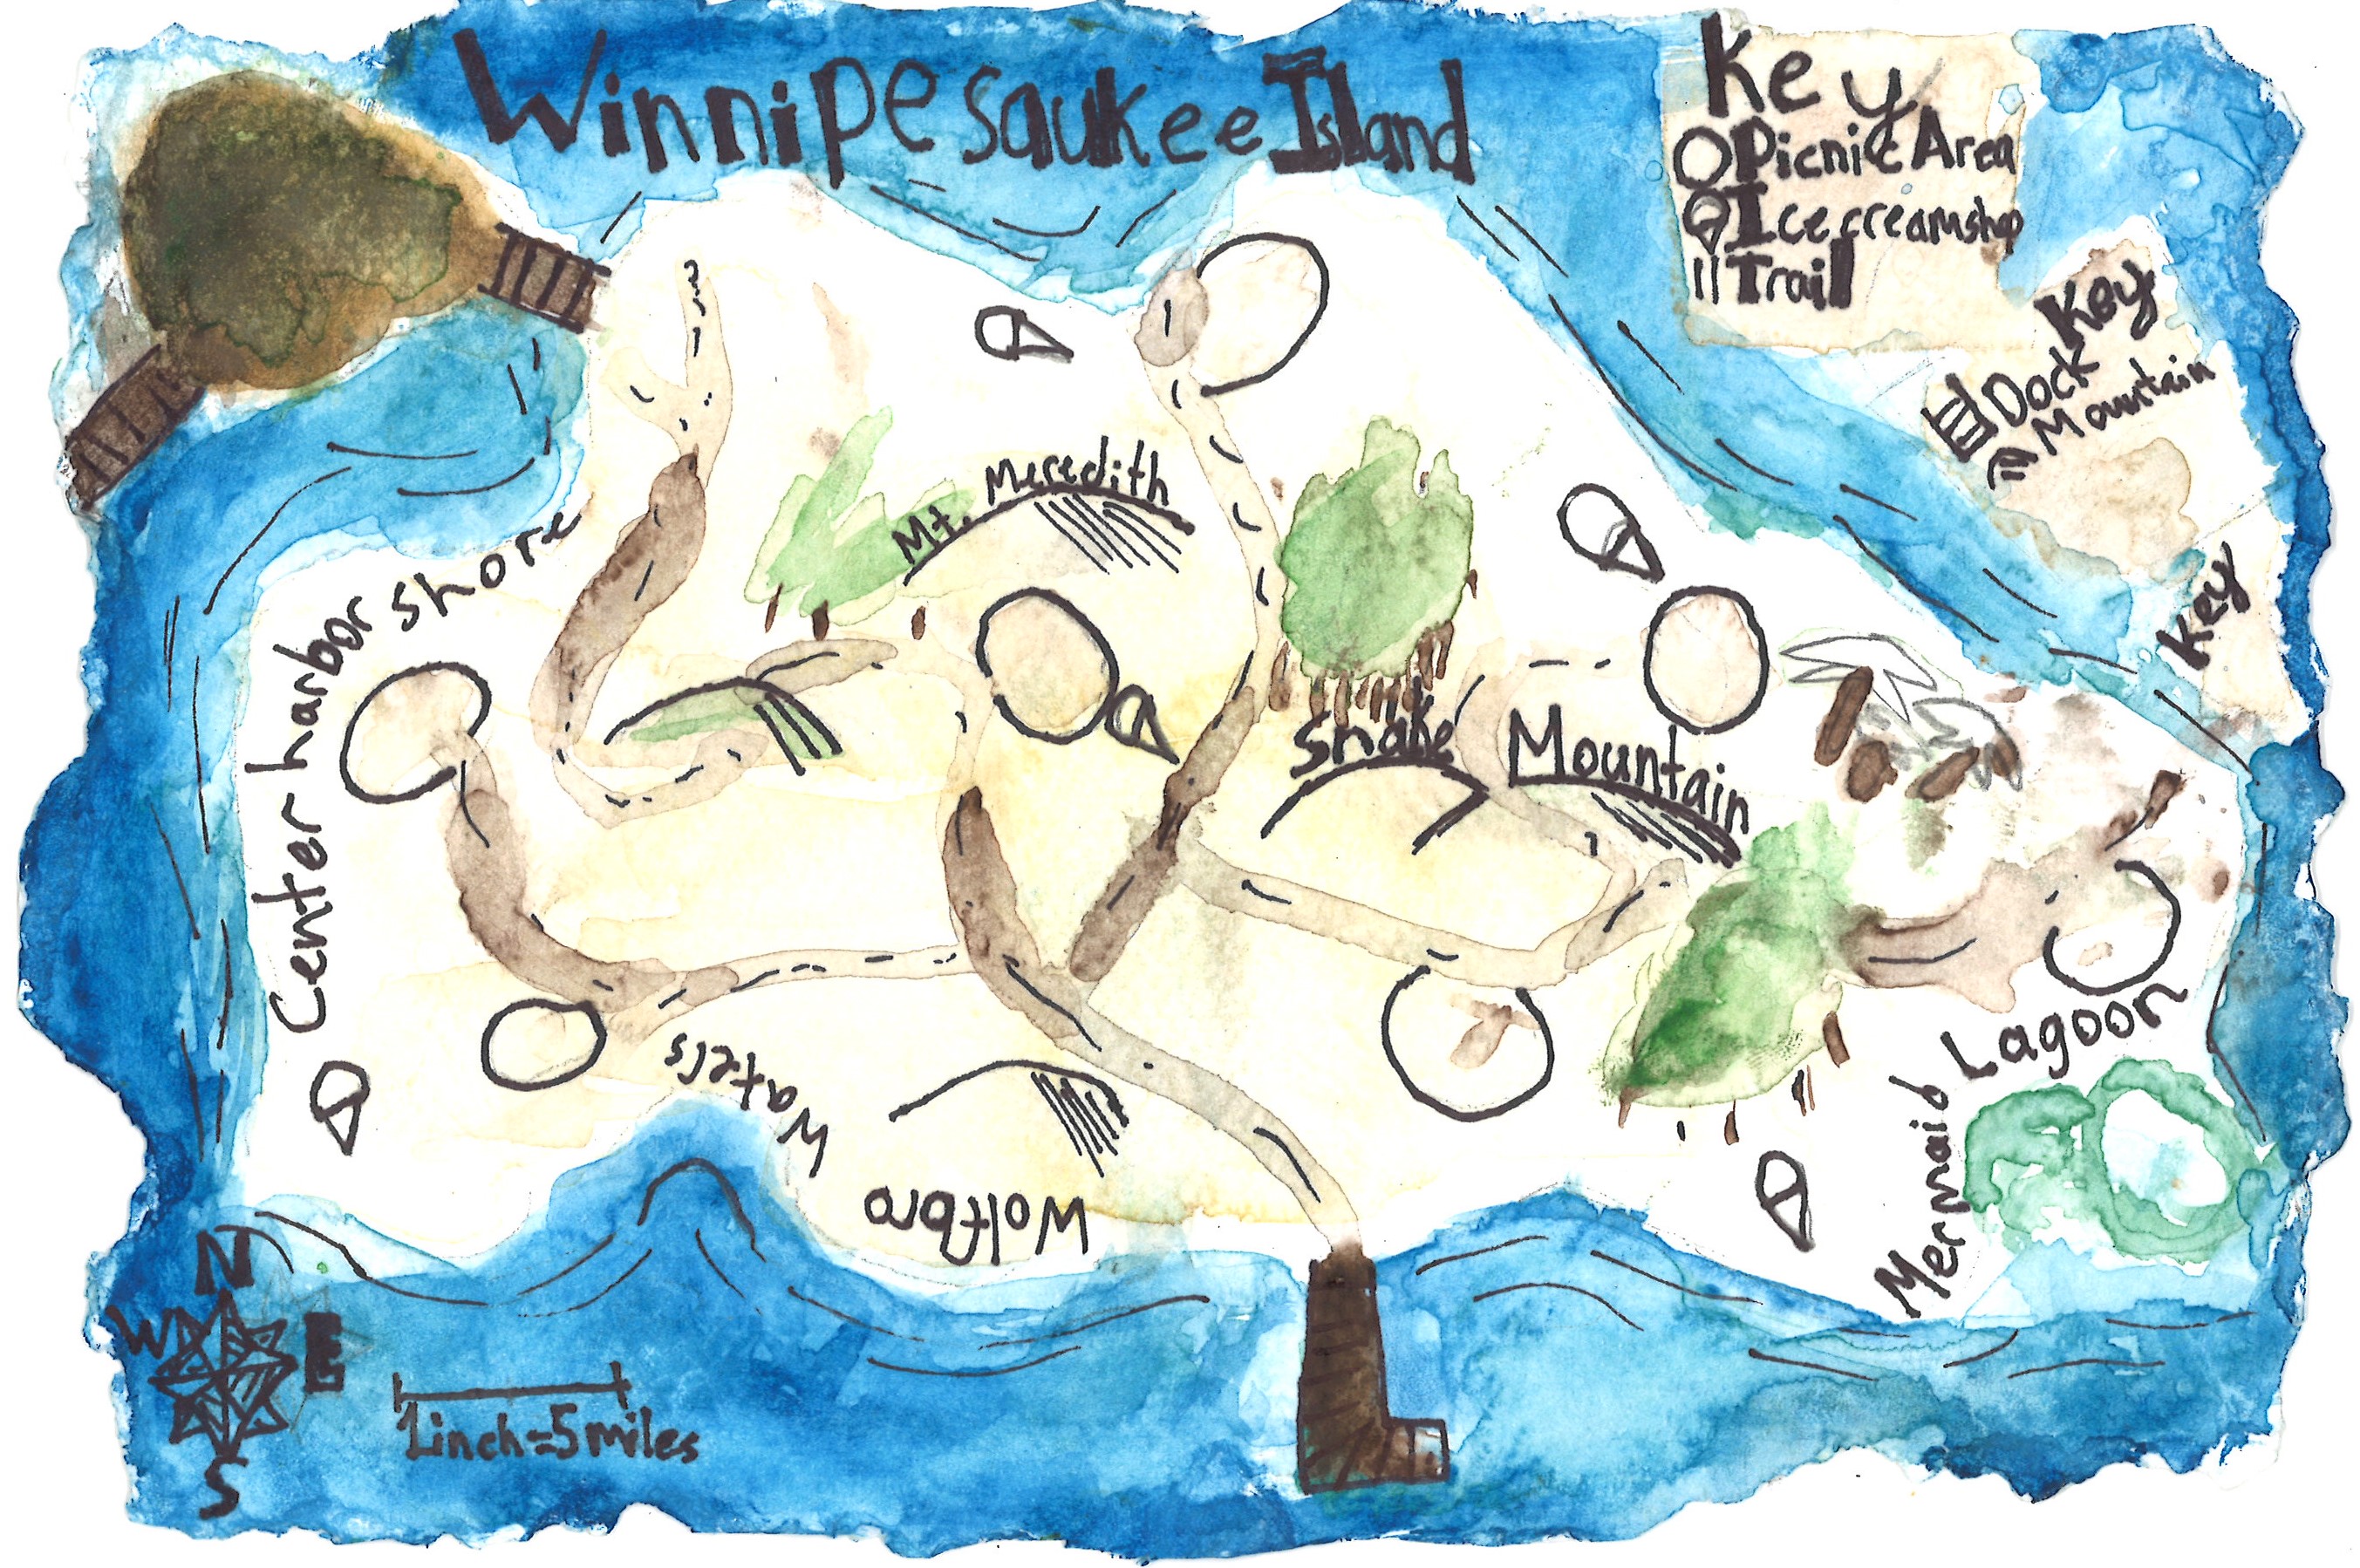 Winnipesaukee Island
Key
Picnic Area
Ice creamshop
Trail
Key
Dock
Mountain
Key
Center harbor shore
Mt. Meredith
Snake Mountain
Mermaid Lagoon
Waters
Wolfbro
N
W
E
S
1inch=5miles